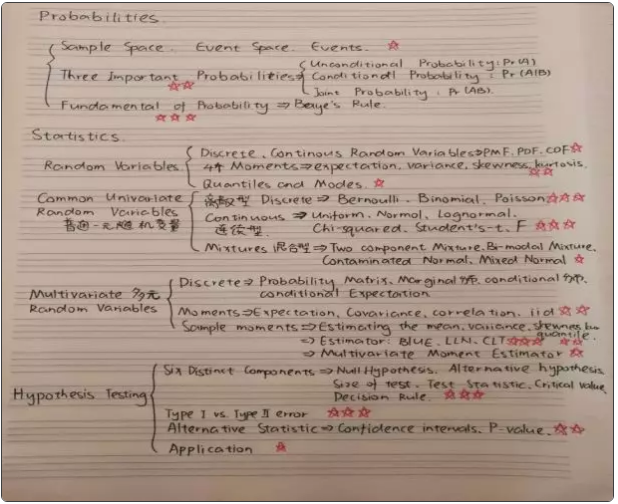 Probabilities.
Sample Space. Event Space. Events. ☆
Three Important Probabilities
☆☆
Unconditional Probability: Pr(A)
Conditionl Probability: Pr(A|B)
Joint Probability: Pr(AB).
Fundamental of Probability ⇒ Beaye's Rule.
☆☆☆
Statistics.
Random Variables
Discrete. Continous Random Variables ⇒ PMF. PDF. CDF ☆
4个 Moments ⇒ expectation, variance, skewness, kurtosis.
☆☆
Quantiles and Modes. ☆
Common Univariate
Random Variables
普通一元随机变量
离散型 Discrete ⇒ Bernoulli. Binomial. Poisson ☆☆☆
Continuous ⇒ Uniform. Normal. Lognormal.
连续型 Chi-squared. Student's-t. F ☆☆☆
Mixtures 混合型 ⇒ Two component Mixture. Bi-modal Mixture.
Contaminated Normal. Mixed Normal ☆
Multivariate 多元
Random Variables
Discrete ⇒ Probability Matrix. Marginal 分布. conditional 分布.
conditional Expectation
Moments ⇒ Expectation, Covariance, correlation. iid ☆☆
Sample moments ⇒ Estimating the mean, variance, skewness
quantile.
⇒ Estimator: BLUE. LLN. CLT ☆☆☆ ☆☆
⇒ Multivariate Moment Estimator ☆
Hypothesis Testing
Six Distinct Components ⇒ Null Hypothesis. Alternative hypothesis
Size of test. Test Statistic. Critical Value
Decision Rule. ☆☆☆
Type I vs. Type II error ☆☆☆
Alternative Statistic ⇒ Confidence intervals. P-value. ☆☆
Application ☆